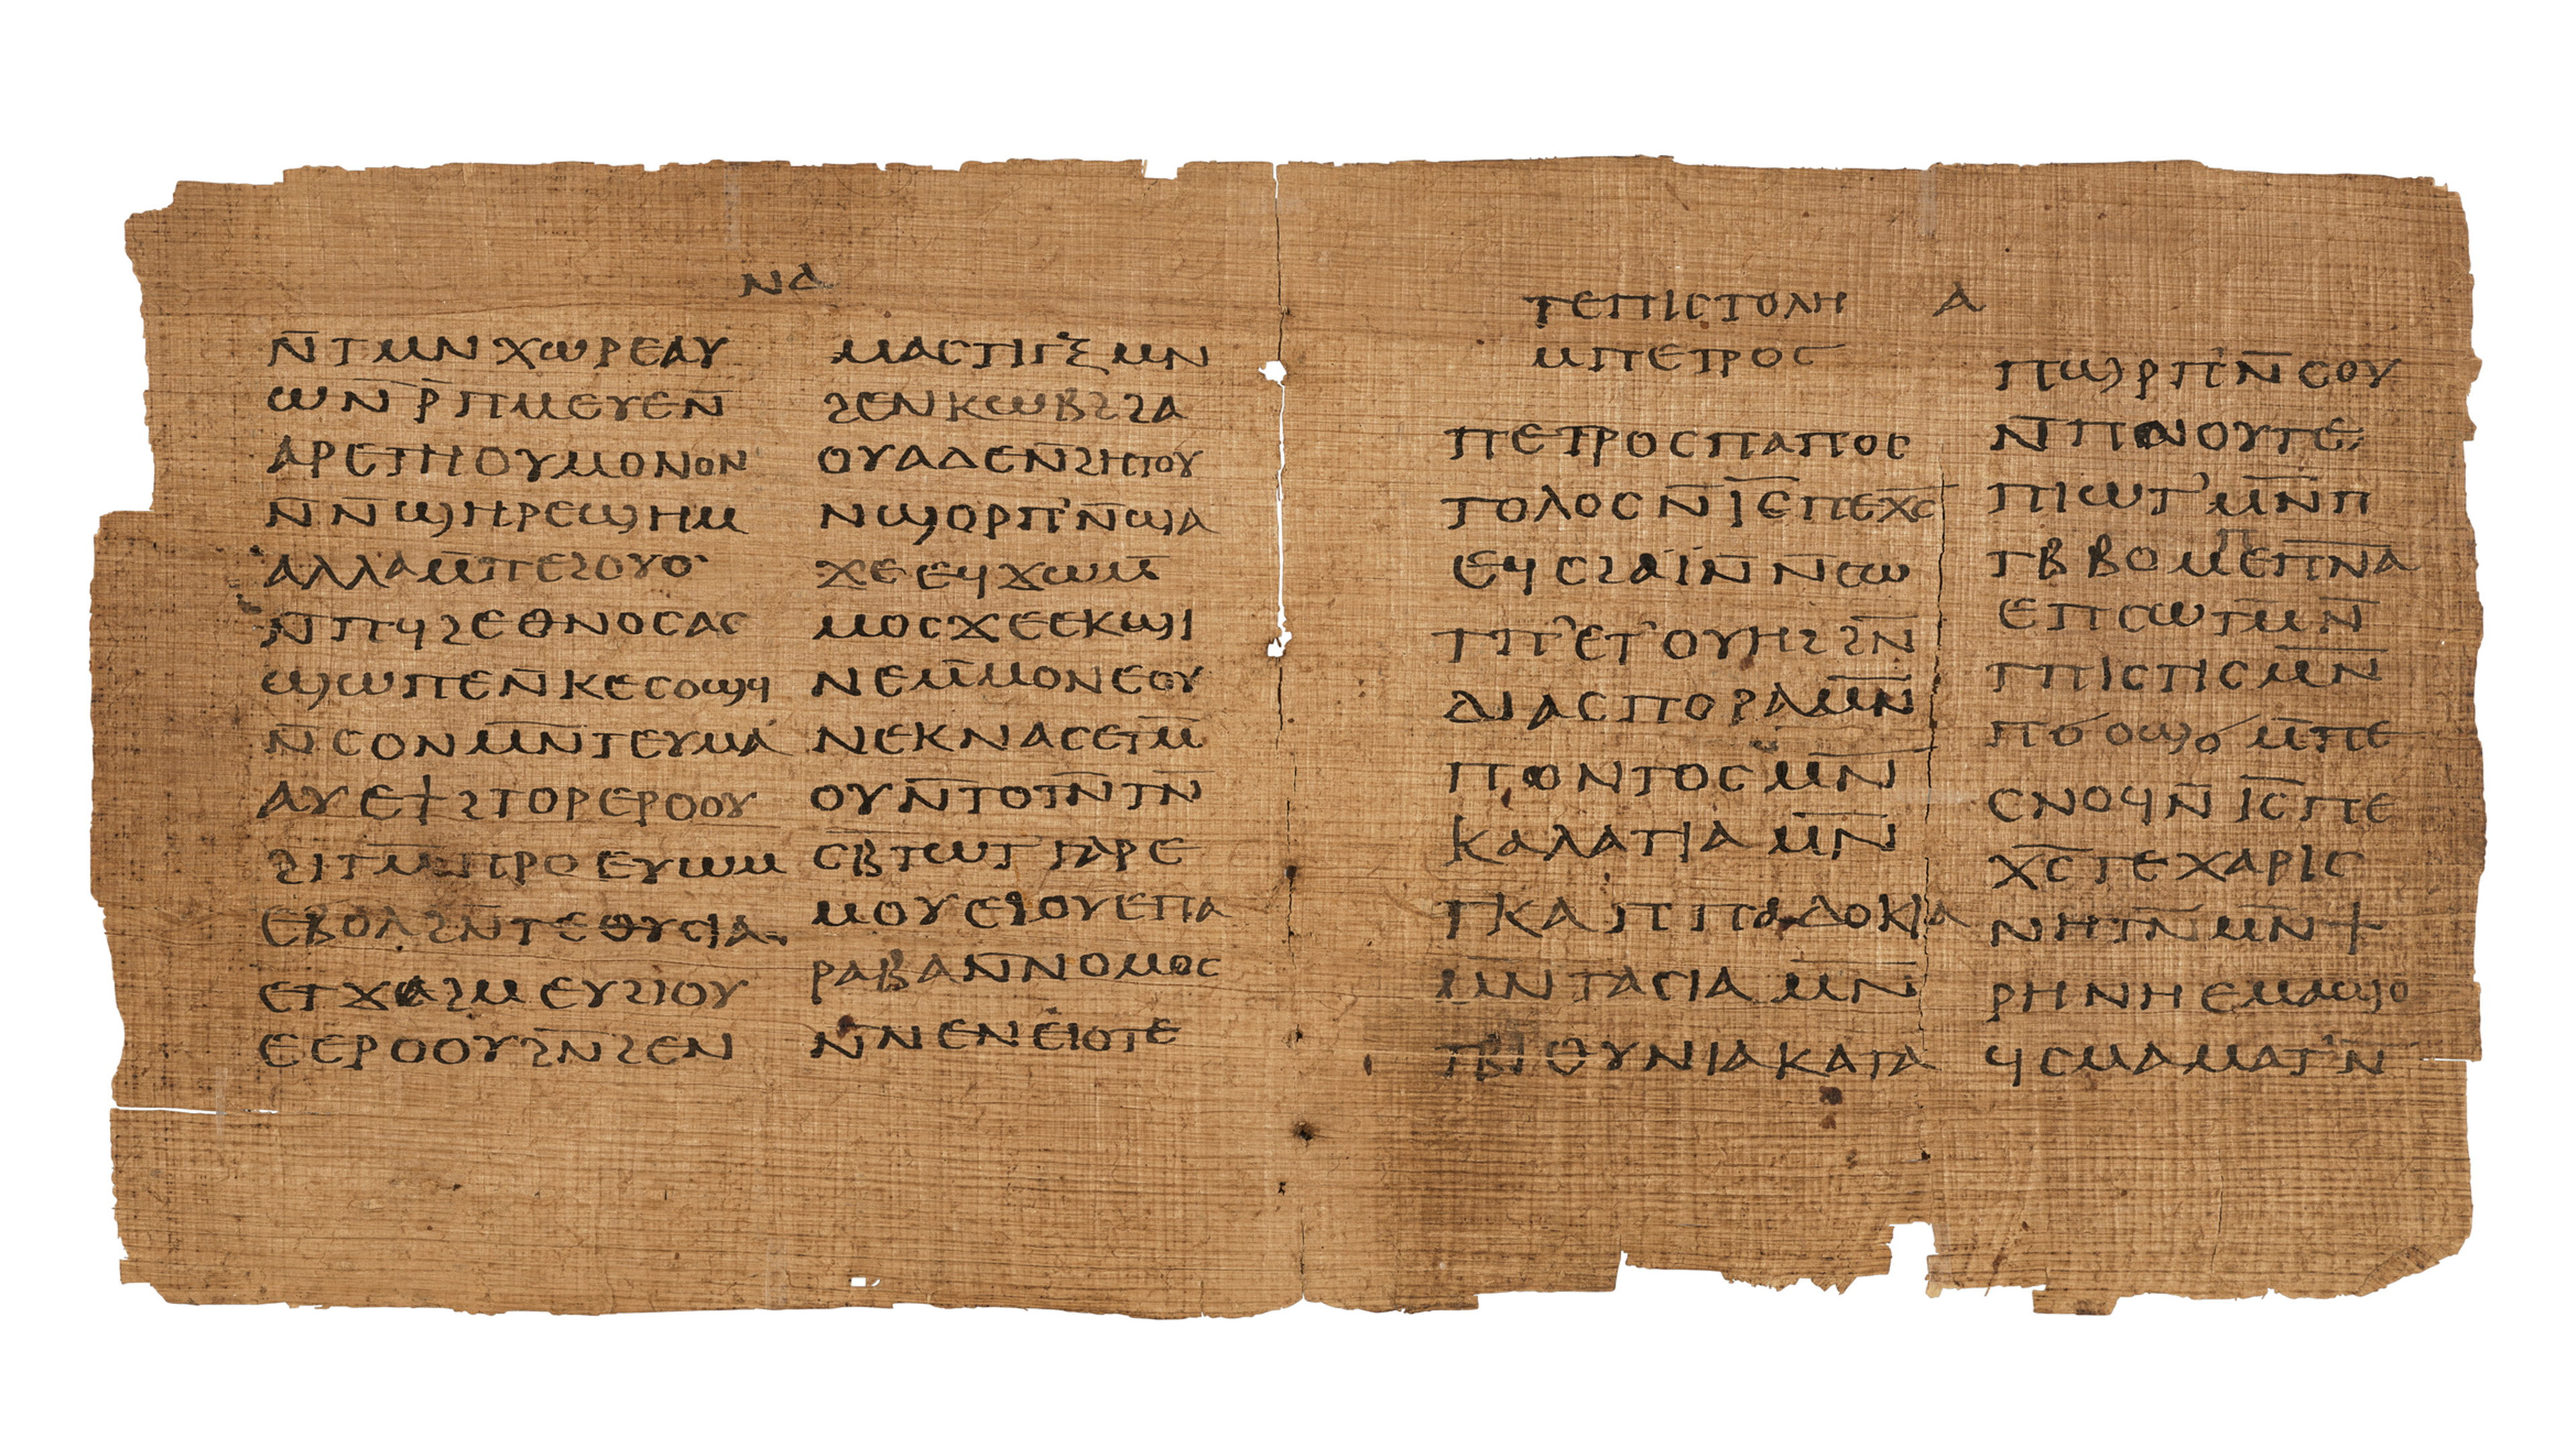 ⲛⲁ
ⲛ̄ⲧⲙⲛϫⲱⲣⲉⲁⲩ
ⲱⲛ̄ⲣ̄ⲡⲙⲉⲩⲉⲛ̄
ⲁⲣⲉⲧⲏⲟⲩⲙⲟⲛⲟⲛ
ⲛ̄ⲛ̄ϣⲏⲣⲉϣⲏⲙ
ⲁⲗⲗⲁⲙ̄ⲡⲉϩⲟⲩⲟ
ⲛ̄ⲡϥϩⲉⲑⲛⲟⲥⲁⲥ
ϣⲱⲡⲉⲛ̄ⲕⲉⲥⲟϣϥ
ⲛ̄ⲥⲟⲛⲙⲛ̄ⲧⲉⲩⲙⲁ
ⲁⲩⲉϯϩⲧⲟⲣⲉⲣⲟⲟⲩ
ϩⲓⲧⲙ̄ⲡⲣⲟⲉⲩⲱⲙ
ⲉⲃⲟⲗϩⲛ̄ⲧⲉⲑⲩⲥⲓⲁ
ⲉⲧϫⲁϩⲙⲉⲩϩⲓⲟⲩ
ⲉⲉⲣⲟⲟⲩϩⲛ̄ϩⲉⲛ
ⲙⲁⲥⲧⲓⲅⲝⲙⲛ
ϩⲉⲛⲕⲱⲃϩϩⲁ
ⲟⲩⲁⲇⲉⲛ̄ϩⲏⲧⲟⲩ
ⲛϣⲟⲣⲡ'ⲛ̄ϣⲁ
ϫⲉⲉϥϫⲱⲙ̄
ⲙⲟⲥϫⲉⲉⲕϣⲓ
ⲛⲉⲙ̄ⲙⲟⲛⲉⲟⲩ
ⲛⲉⲕⲛⲁⲥⲉⲧⲙ̄
ⲟⲩⲛ̄ⲧⲟⲧⲛ̄ⲧⲛ̄
ⲥⲃⲧⲱⲧⲅⲁⲣⲉ
ⲙⲟⲩⲉϩⲟⲩⲉⲡⲁ
ⲣⲁⲃⲁⲛ̄ⲛⲟⲙⲟⲥ
ⲛ̄ⲛⲉⲛⲉⲓⲟⲧⲉ
ⲧⲉⲡⲓⲥⲧⲟⲗⲏ ⲁ
ⲙⲡⲉⲧⲣⲟⲥ
ⲡⲉⲧⲣⲟⲥⲡⲁⲡⲟⲥ
ⲧⲟⲗⲟⲥⲛ̄ⲓ̄ⲥ̄ⲡⲉⲭ̄ⲥ̄
ⲉϥⲥϩⲁⲓⲛ̄ⲛ̄ⲥⲱ
ⲧⲡ'ⲉⲧ'ⲟⲩⲏϩϩⲛ̄
ⲇⲓⲁⲥⲡⲟⲣⲁⲙⲛ̄
ⲡⲟⲛⲧⲟⲥⲙⲛ̄
ⲕⲁⲗⲁⲧⲓⲁⲙⲛ̄
ⲧⲕⲁⲡⲡⲁⲇⲟⲕⲓⲁ
ⲙⲛ̄ⲧⲁⲥⲓⲁⲙⲛ̄
ⲧⲃⲓⲑⲩⲛⲓⲁⲕⲁⲧⲁ
ⲡϣⲣⲡ'ⲛ̄ⲥⲟⲩ
ⲛ̄ⲡⲛⲟⲩⲧⲉ
ⲡⲓⲱⲧ'ⲙⲛ̄ⲡ
ⲧⲃⲃⲟⲙⲡⲉⲡ̄ⲛ̄ⲁ̄
ⲉⲡⲥⲱⲧⲙⲛ̄
ⲧⲡⲓⲥⲧⲓⲥⲙⲛ̄
ⲡϭⲟϣϭⲙ̄ⲡⲉ
ⲥⲛⲟϥⲛ̄ⲓ̄ⲥ̄ⲡⲉ
ⲭ̄ⲥ̄ⲧⲉⲭⲁⲣⲓⲥ
ⲛⲏⲧⲛ̄ⲙⲛ̄ϯ
ⲣⲏⲛⲏⲉⲙⲁϣⲟ
ϥⲥⲙⲁⲙⲁⲧ'ⲛ̄